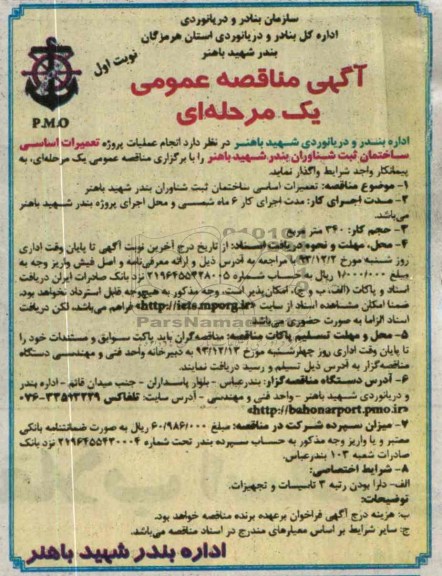 سازمان بنادر و دریانوردی
اداره کل بنادر و دریانوردی استان هرمزگان
بندر شهید باهنر
نوبت اول
P.M.O
آگهی مناقصه عمومی
یک مرحله‌ای
اداره بنـدر و دریانوردی شـهید باهنـر در نظر دارد انجام عملیات پروژه تعمیرات اساسـی
سـاختمان ثبت شـناوران بندر شـهید باهنر را با برگزاری مناقصه عمومی یک مرحله‌ای، به
پیمانکار واجد شرایط واگذار نماید.
۱- موضوع مناقصه: تعمیرات اساسی ساختمان ثبت شناوران بندر شهید باهنر
۲- مـدت اجـرای کار: مدت اجرای کار ۶ ماه شمسـی و محل اجرای پروژه بندر شـهید باهنر
می‌باشد.
۳- حجم کار: ۳۴۰ متر مربع
۴- محل، مهلت و نحوه دریافت اسـناد: از تاریخ درج آخرین نوبت آگهی تا پایان وقت اداری
روز شـنبه مورخ ۹۳/۱۲/۲ با مراجعه به آدرس ذیل و ارائه معرفی‌نامه و اصل فیش واریز وجه به
مبلغ ۱/۰۰۰/۰۰۰ ریال به حسـاب شـماره ۲۱۹۶۴۵۵۴۲۸۰۰۵ نزد بانک صادرات ایران دریافت
اسناد و پاکات (الف، ب و ج)، امکان‌پذیر اسـت. وجه مذکور به هیچ‌وجه قابل اسـترداد نخواهد بود.
ضمنا امکان مشـاهده اسناد از سایت <http://iets.mporg.ir> فراهم می‌باشد، لکن دریافت
اسناد الزاما به صورت حضوری می‌باشد.
ParsNamaddata
۵- محل و مهلت تسـلیم پاکات مناقصه: مناقصه‌گران باید پاکت سـوابق و مستندات خود را
تا پایان وقت اداری روز چهارشـنبه مورخ ۹۳/۱۲/۱۳ به دبیرخانه واحد فنی و مهندسـی دستگاه
مناقصه‌گزار به آدرس ذیل تسلیم و رسید دریافت نمایند.
۶- آدرس دسـتگاه مناقصه‌گزار: بندرعباس - بلوار پاسـداران - جنب میدان قائم - اداره بندر
و دریانوردی شهید باهنر - واحد فنی و مهندسی - آدرس سایت: تلفاکس ۳۳۵۹۳۲۲۹-۰۷۶
<http://bahonarport.pmo.ir>
۷- میزان سـپرده شـرکت در مناقصه: مبلغ ۶۰/۹۸۶/۰۰۰ ریال به صورت ضمانتنامه بانکی
معتبر و یا واریز وجه مذکور به حساب سـپرده بندر تحت شماره ۲۱۹۶۴۵۵۴۳۰۰۰۴ نزد بانک
صادرات شعبه ۱۰۳ بندرعباس.
۸- شرایط اختصاصی:
الف- دارا بودن رتبه ۳ تاسیسات و تجهیزات.
توضیحات:
ب: هزینه درج آگهی فراخوان برعهده برنده مناقصه خواهد بود.
ج: سایر شرایط بر اساس معیارهای مندرج در اسناد مناقصه می‌باشد.
اداره بندر شهید باهنر